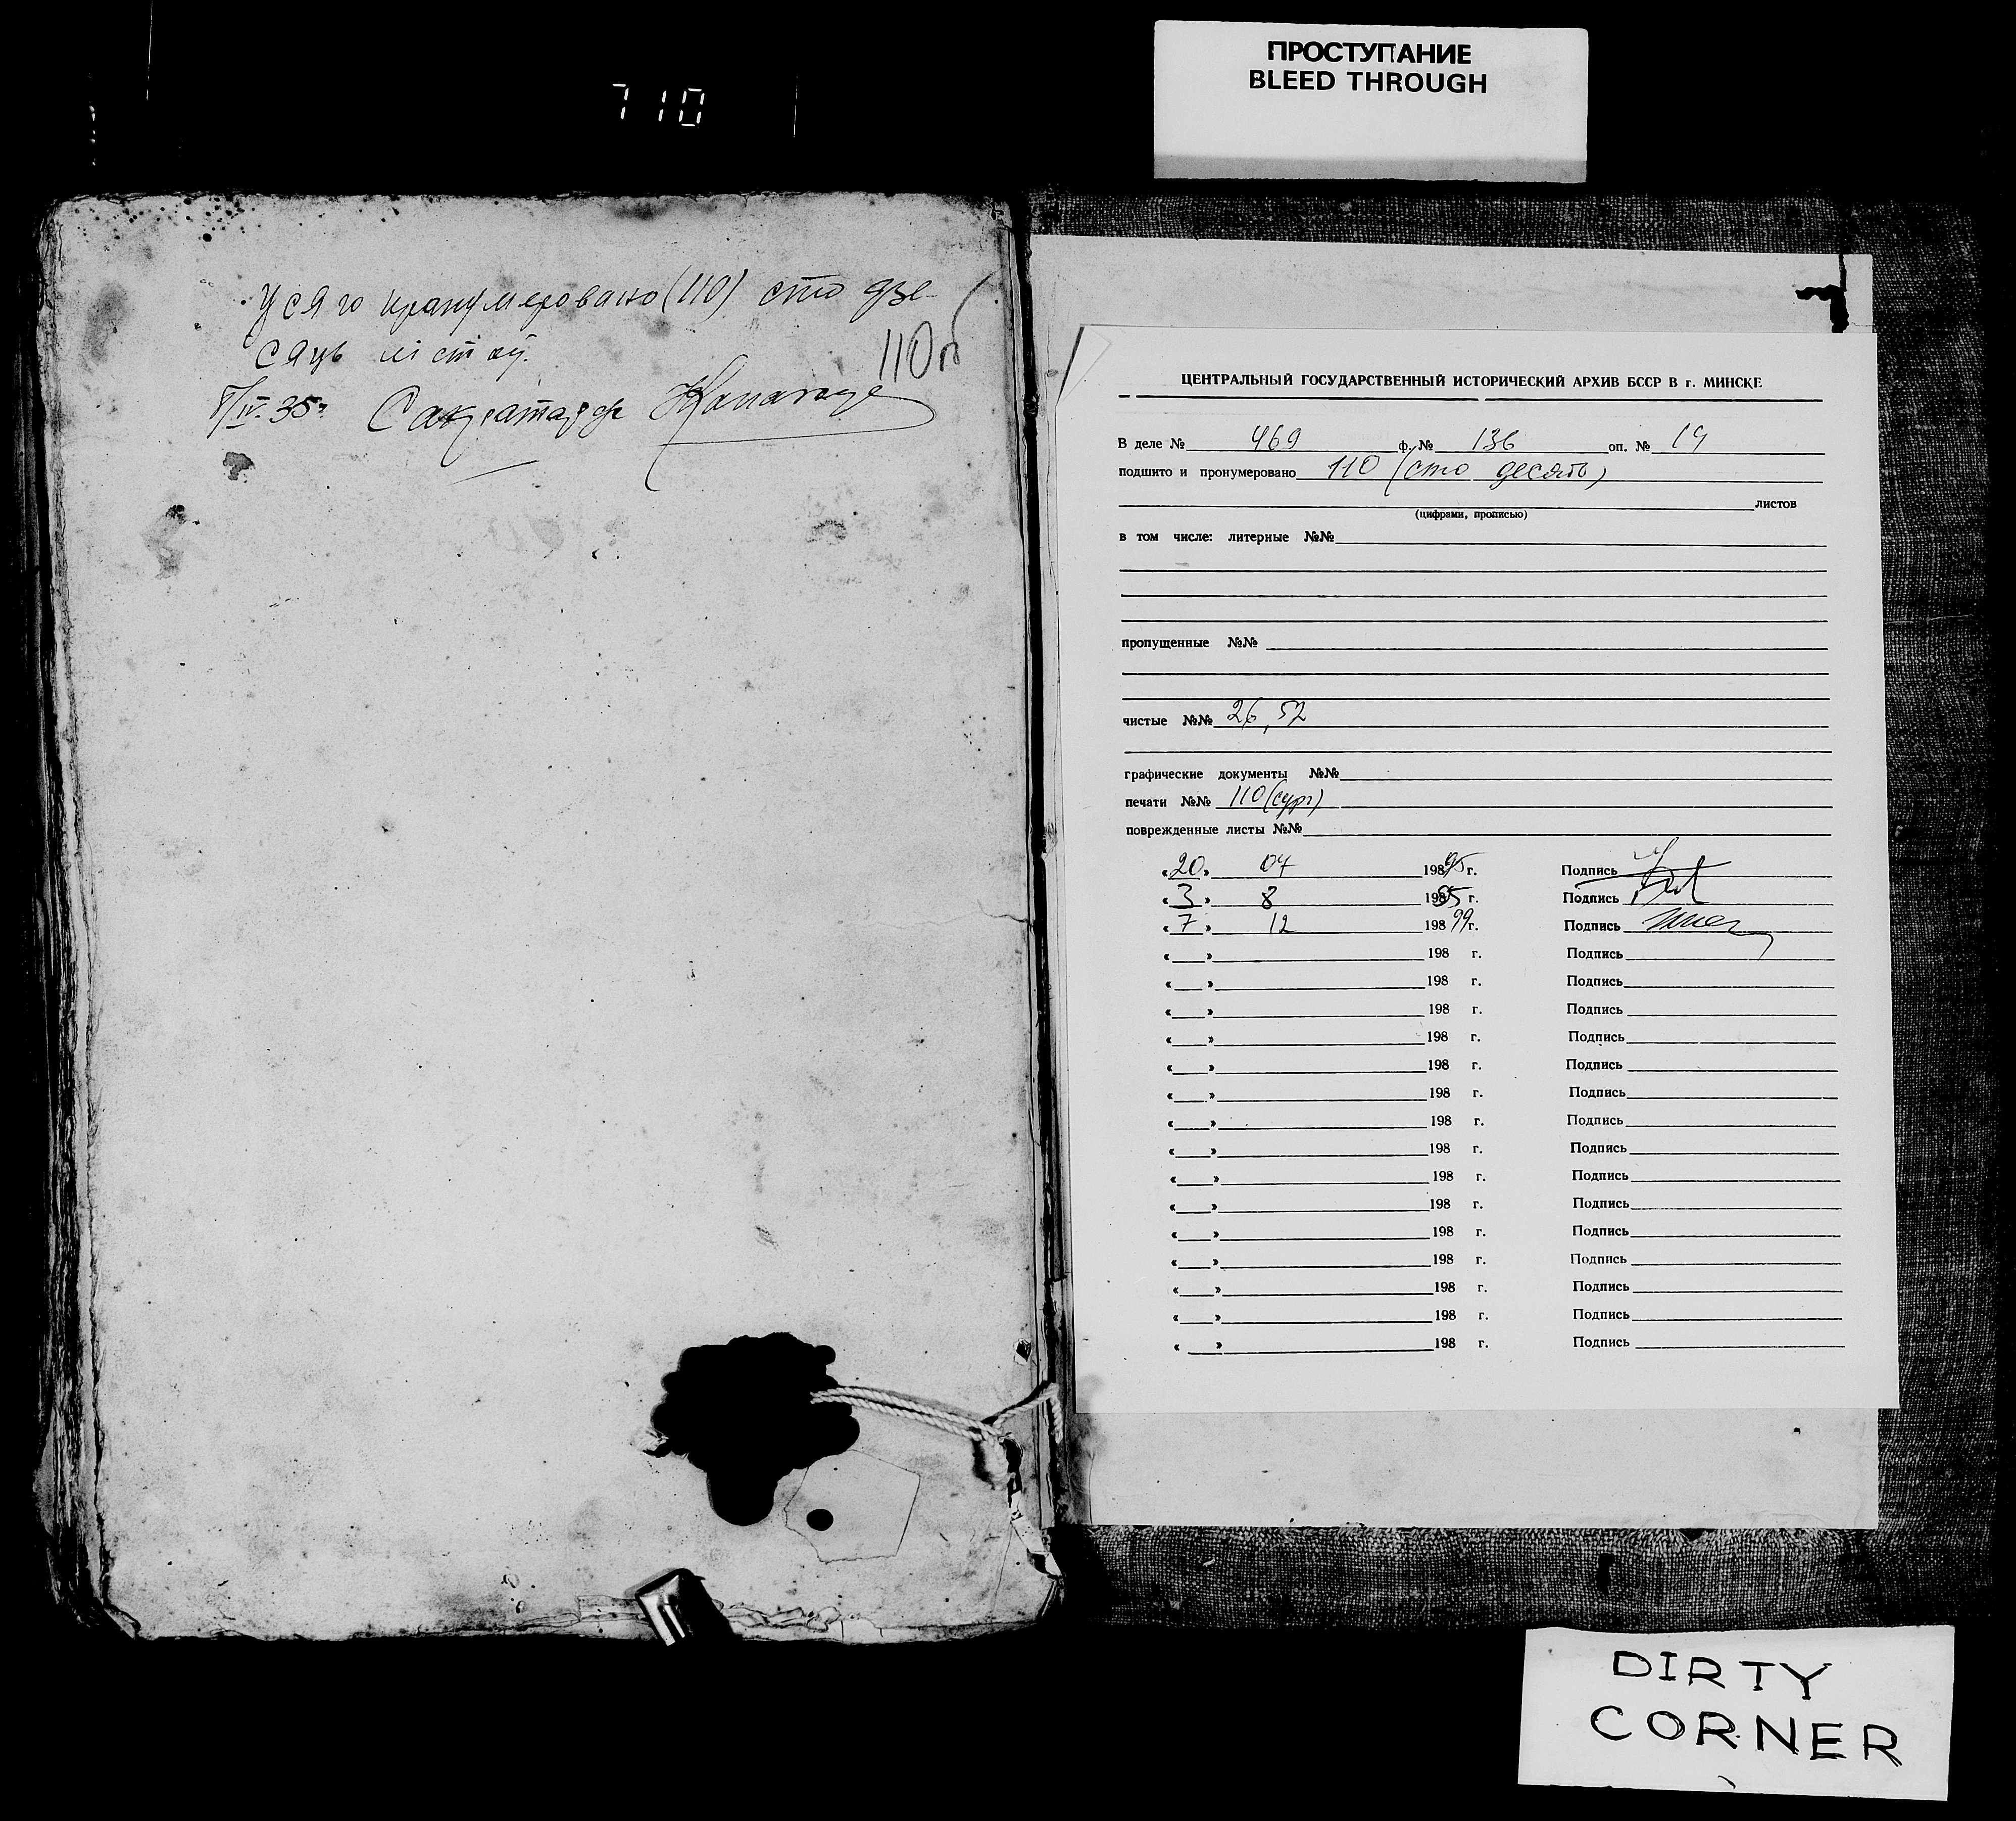 ПРОСТУПАНИЕ
BLEED THROUGH
710
Усяго пранумеровано (110) сто дзе-
сяць лістоў.
110 об
8/IV-35 г. Сакратар
ЦЕНТРАЛЬНЫЙ ГОСУДАРСТВЕННЫЙ ИСТОРИЧЕСКИЙ АРХИВ БССР В г. МИНСКЕ
В деле № 469 ф. № 136 оп. № 19
подшито и пронумеровано 110 (сто десять)
листов
(цифрами, прописью)
в том числе: литерные №№
пропущенные №№
чистые №№ 26, 52
графические документы №№
печати №№ 110 (сург)
поврежденные листы №№
«20» 04 19895 г. Подпись
«3» 8 1995 г. Подпись
«7» 12 198 99 г. Подпись
« » 198 г. Подпись
« » 198 г. Подпись
« » 198 г. Подпись
« » 198 г. Подпись
« » 198 г. Подпись
« » 198 г. Подпись
« » 198 г. Подпись
« » 198 г. Подпись
« » 198 г. Подпись
« » 198 г. Подпись
« » 198 г. Подпись
« » 198 г. Подпись
« » 198 г. Подпись
« » 198 г. Подпись
« » 198 г. Подпись
DIRTY
CORNER